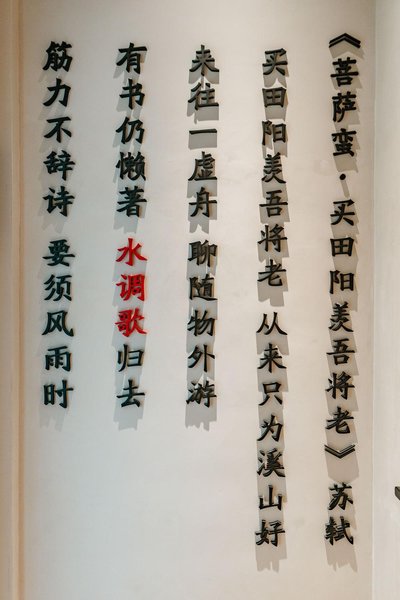 《菩萨蛮·买田阳羡吾将老》苏轼
买田阳羡吾将老 从来只为溪山好
来往一虚舟 聊随物外游
有书仍懒著 水调歌归去
筋力不辞诗 要须风雨时